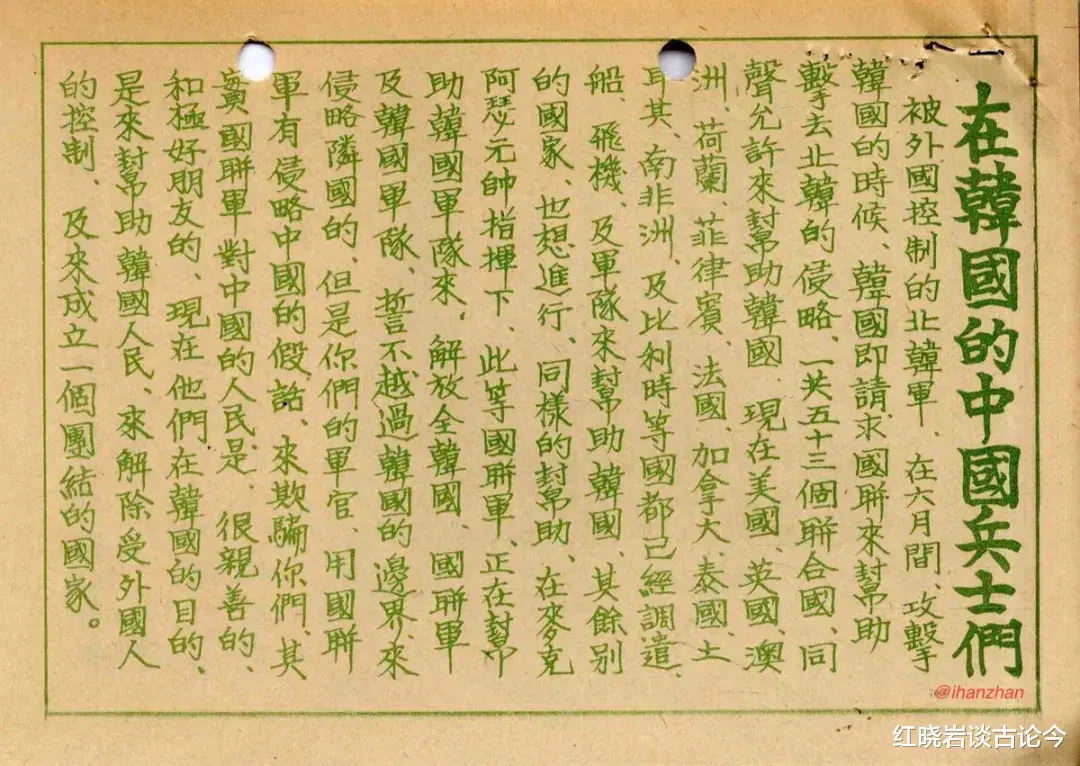 在韓國的中國兵士們
被外國控制的北韓軍、在六月間、攻擊
韓國的時候、韓國即請求國聯來幫助
擊去北韓的侵略、一共五十三個聯合國、同
聲允許來幫助韓國、現在美國、英國、澳
洲、荷蘭、菲律賓、法國、加拿大、泰國、土
耳其、南非洲、及比利時等國都已經調遣、
船、飛機、及軍隊來幫助韓國、其餘別
的國家、也想進行、同樣的封幫助、在麥克
阿瑟元帥指揮下、此等國聯軍、正在幫
助韓國軍隊來、解放全韓國、國聯軍
及韓國軍隊、誓不越過韓國的邊界、來
侵略隣國的、但是你們的軍官、用國聯
軍有侵略中國的假話、來欺騙你們、其
實國聯軍對中國的人民、是、很親善的、
和極好朋友的、現在他們、在韓國的目的、
是來幫助韓國人民、來解除受外國人
的控制、及來成立一個團結的國家。
@ihanzhan
红晓岩谈古论今